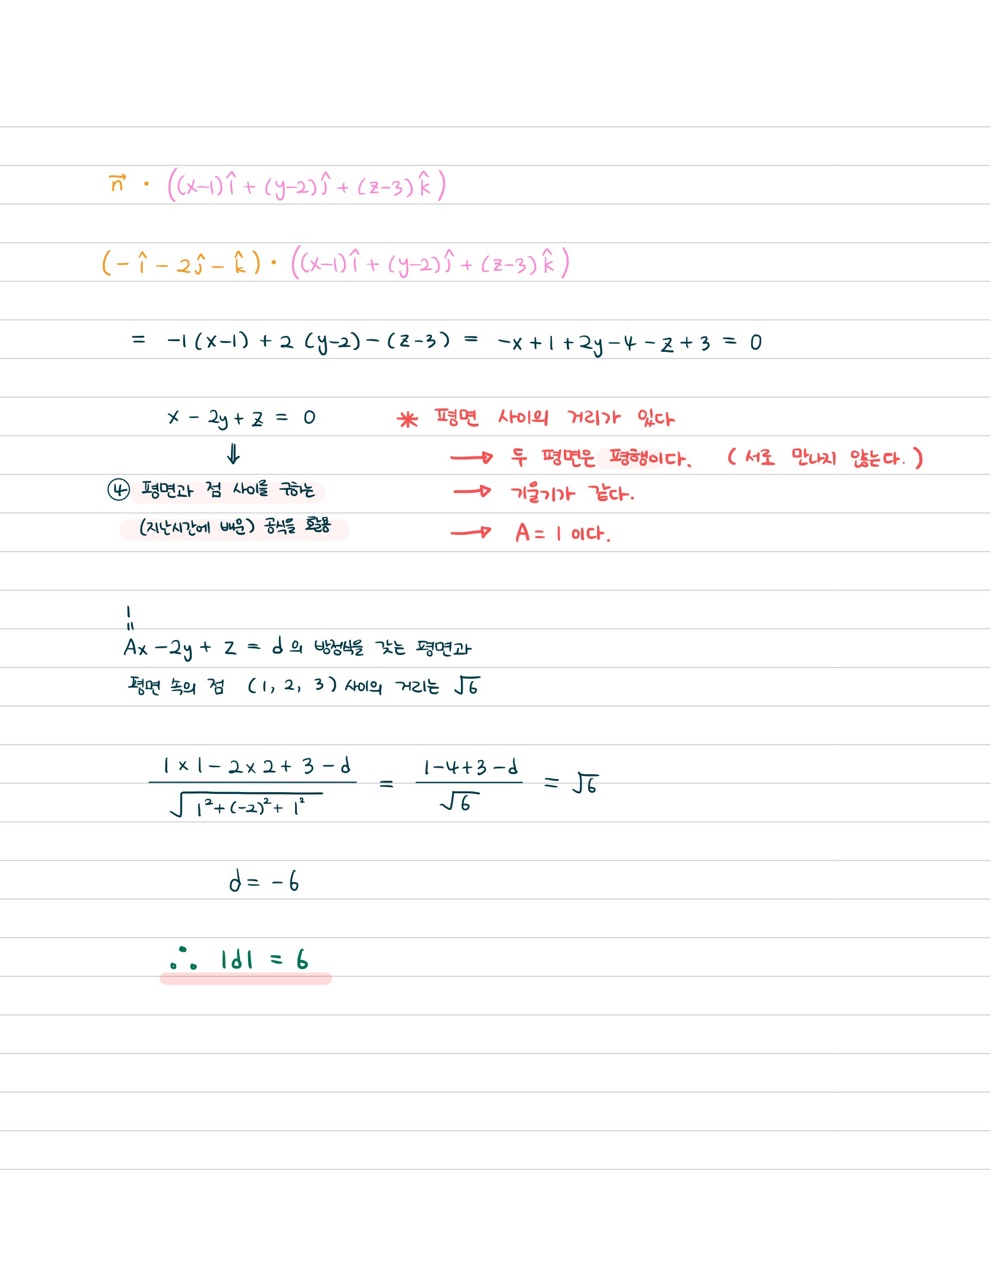 n⃗ · ((x-1)î + (y-2)ĵ + (z-3)k̂)
(-î - 2ĵ - k̂) · ((x-1)î + (y-2)ĵ + (z-3)k̂)
= -1(x-1) + 2(y-2) - (z-3) = -x+1+2y-4-z+3 = 0
x - 2y + z = 0 * 평면 사이의 거리가 있다
⇓ → 두 평면은 평행이다. (서로 만나지 않는다.)
④ 평면과 점 사이를 구하는 → 기울기가 같다.
(지난시간에 배운) 공식을 활용 → A = 1 이다.
1
=
Ax - 2y + z = d 의 방정식을 갖는 평면과
평면 속의 점 (1, 2, 3) 사이의 거리는 √6
1×1-2×2+3-d / √(1²+(-2)²+1²) = 1-4+3-d / √6 = √6
d = -6
∴ |d| = 6